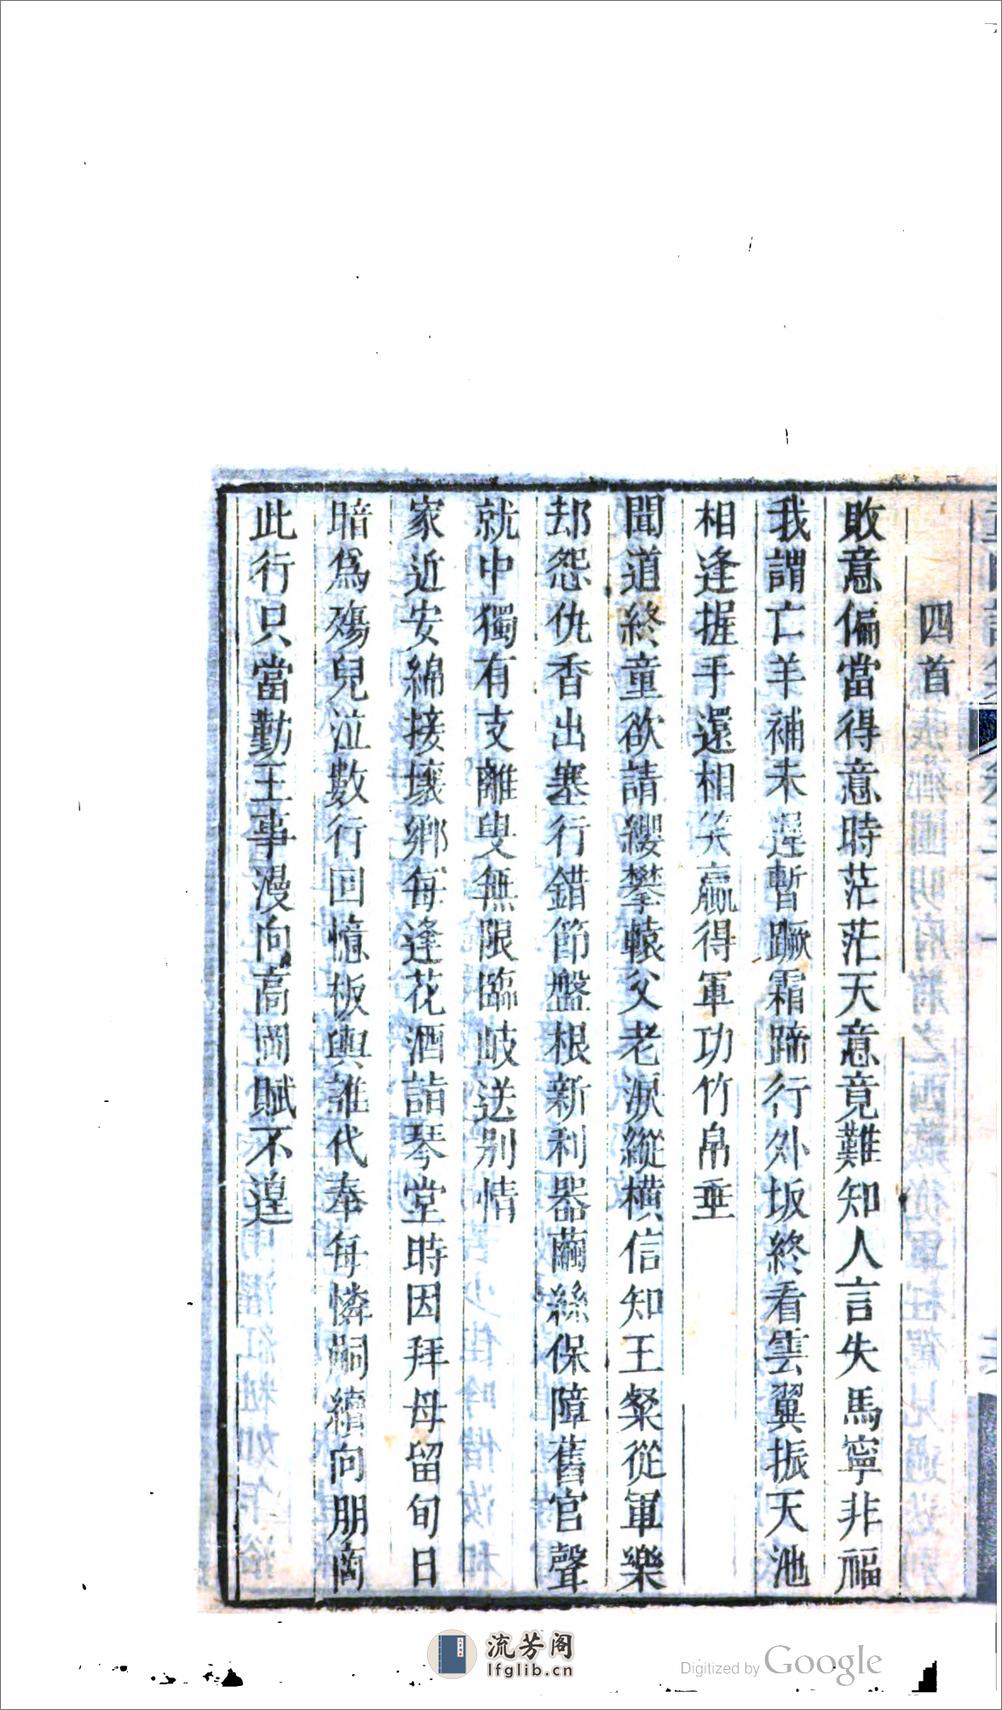 四首
敗意偏當得意時茫茫天意竟難知人言失馬寧非福
我謂亡羊補未遲暫蹶霜蹄行外坂終看雲翼振天池
相逢握手還相笑贏得軍功竹帛垂
聞道終童欲請纓攀轅父老淚縱橫信知王粲從軍樂
却怨仇香出塞行錯節盤根新利器繭絲保障舊官聲
就中獨有支離叟無限臨岐送别情
家近安綿接壤鄉每逢花酒詣琴堂時因拜母留旬日
暗爲殤兒泣數行回憶板輿誰代奉每憐嗣續向朋商
此行只當勤王事漫向高岡賦不遑
流芳阁
lfglib.cn
Digitized by Google